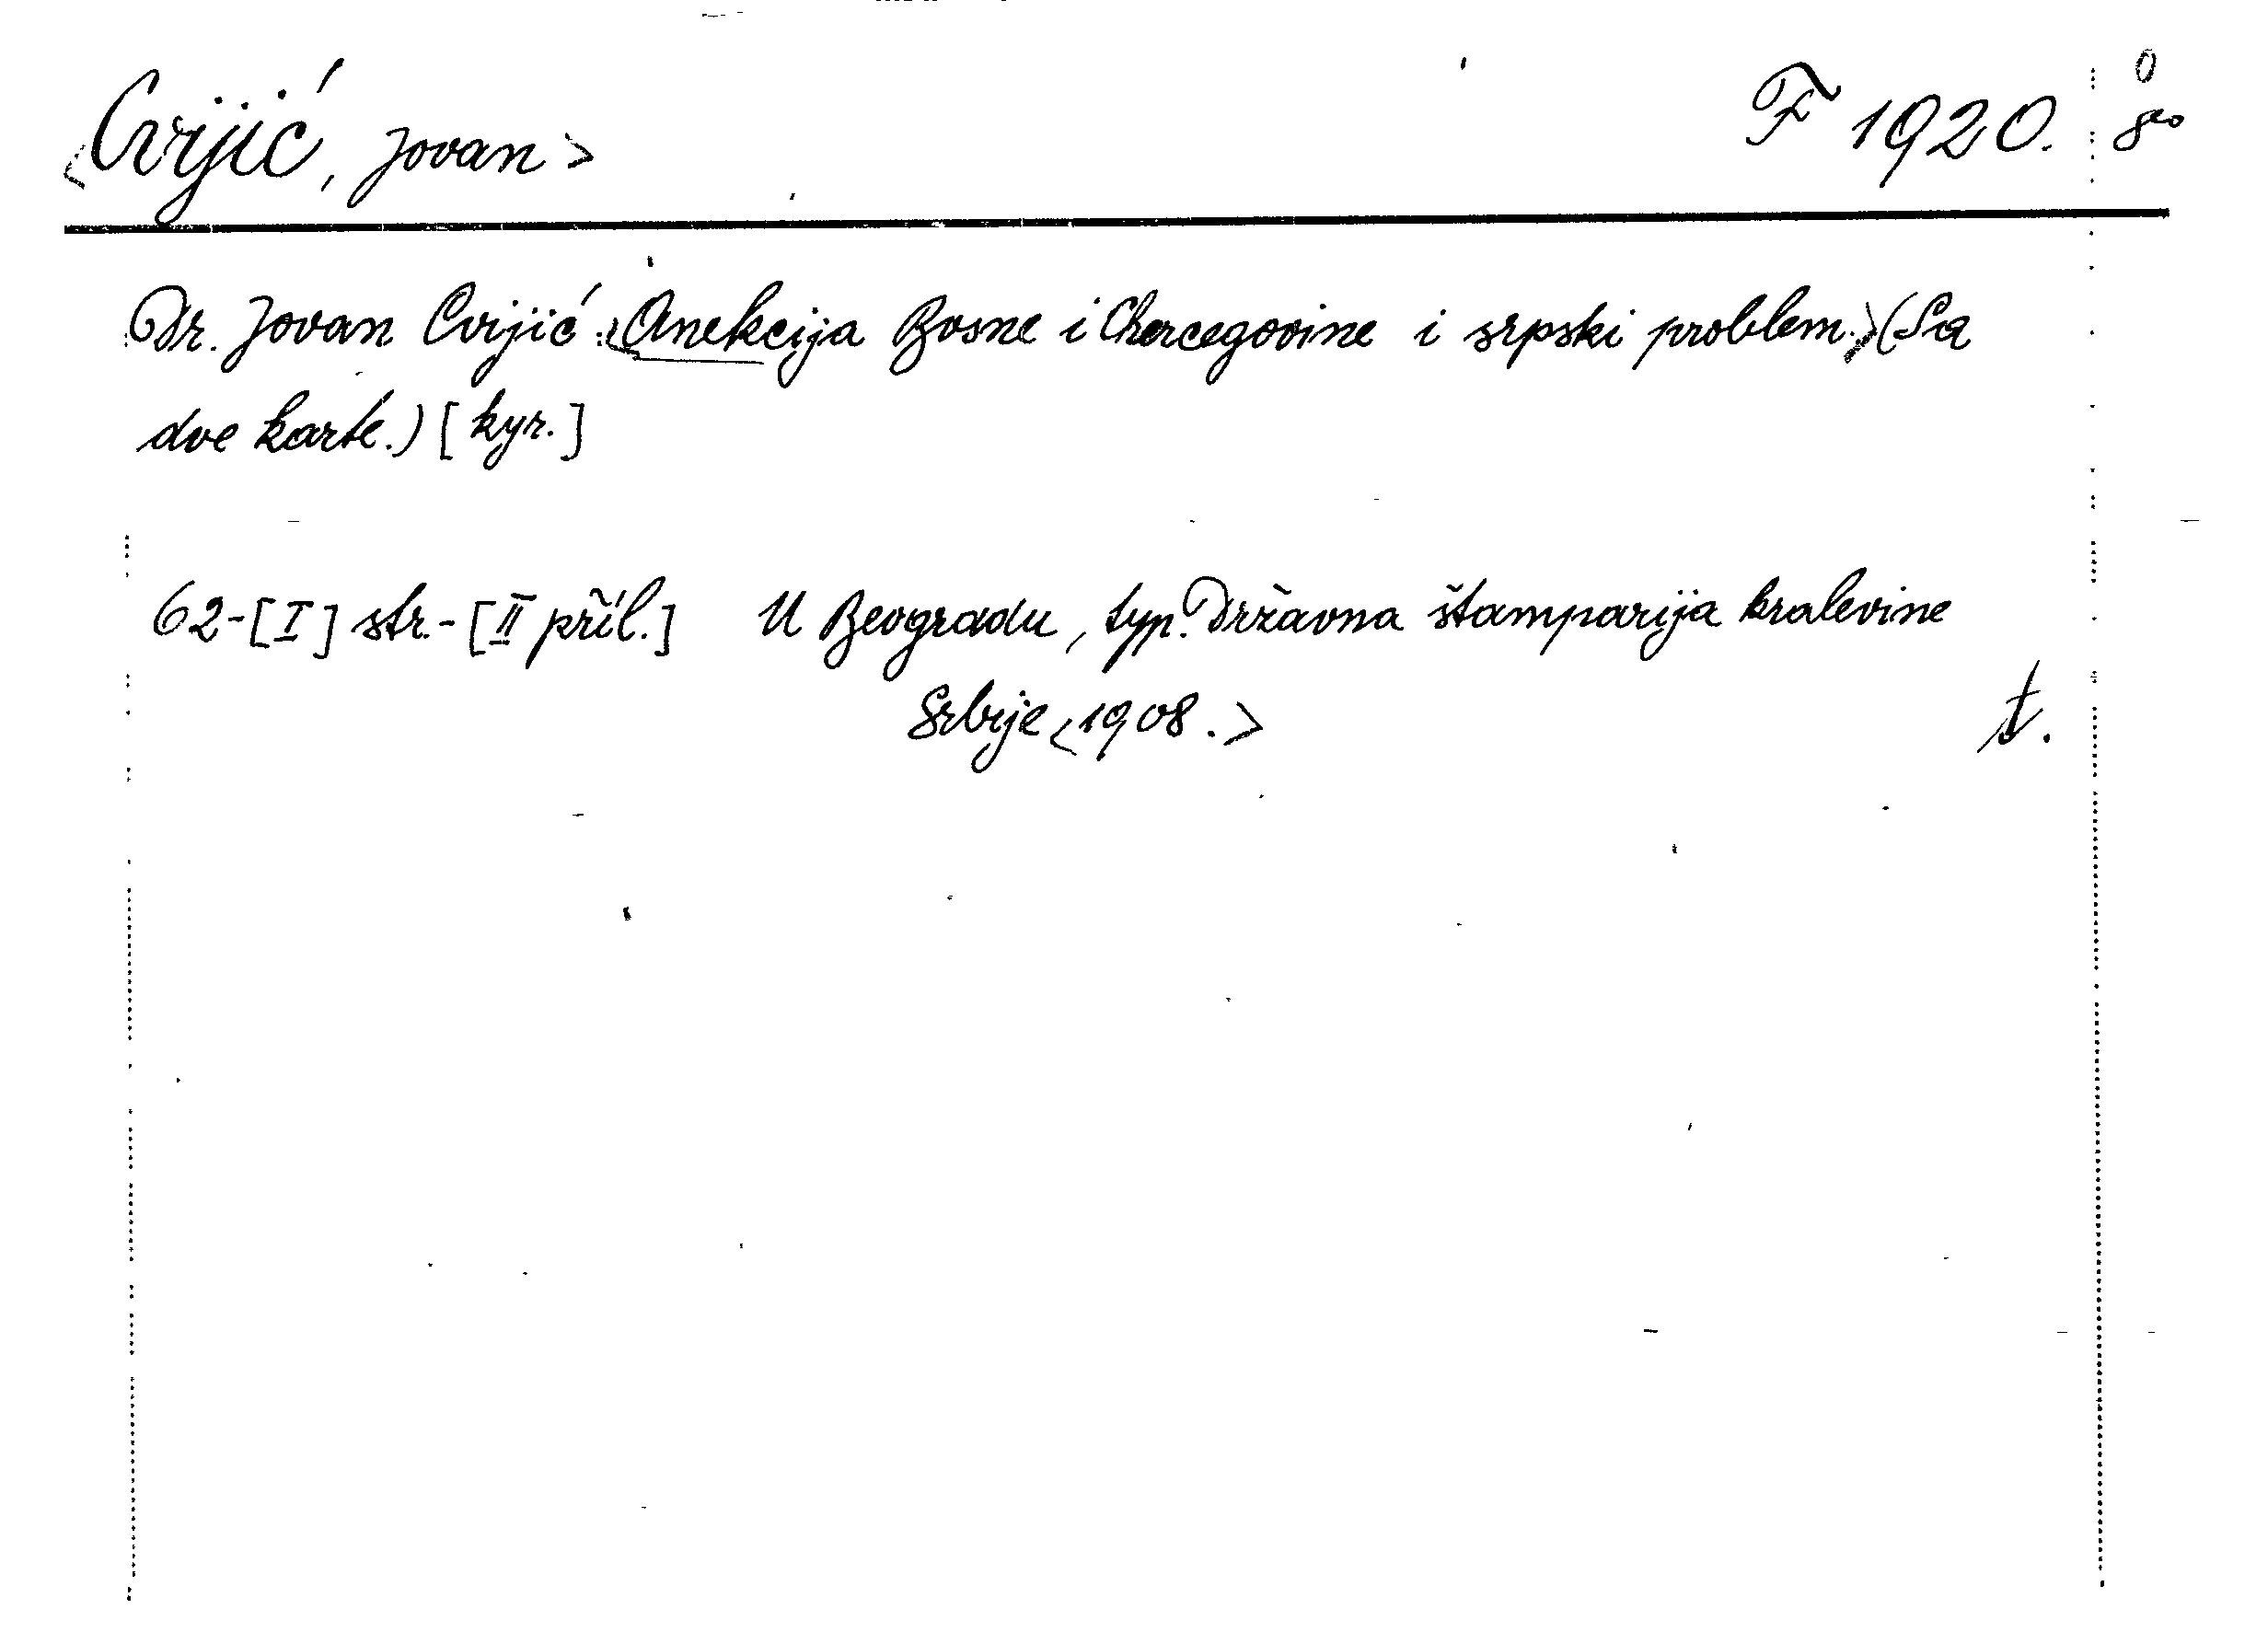 <Cvijić, Jovan> F 1920. 8°
Dr. Jovan Cvijić: <Anekcija Bosne i Chercegovine i srpski problem.> (Sa
dve karte.) [kyr.]
62-[I] str.-[II příl.] U Beogradu, typ. Državna štamparija kralevine
Srbije <1908.>
t.